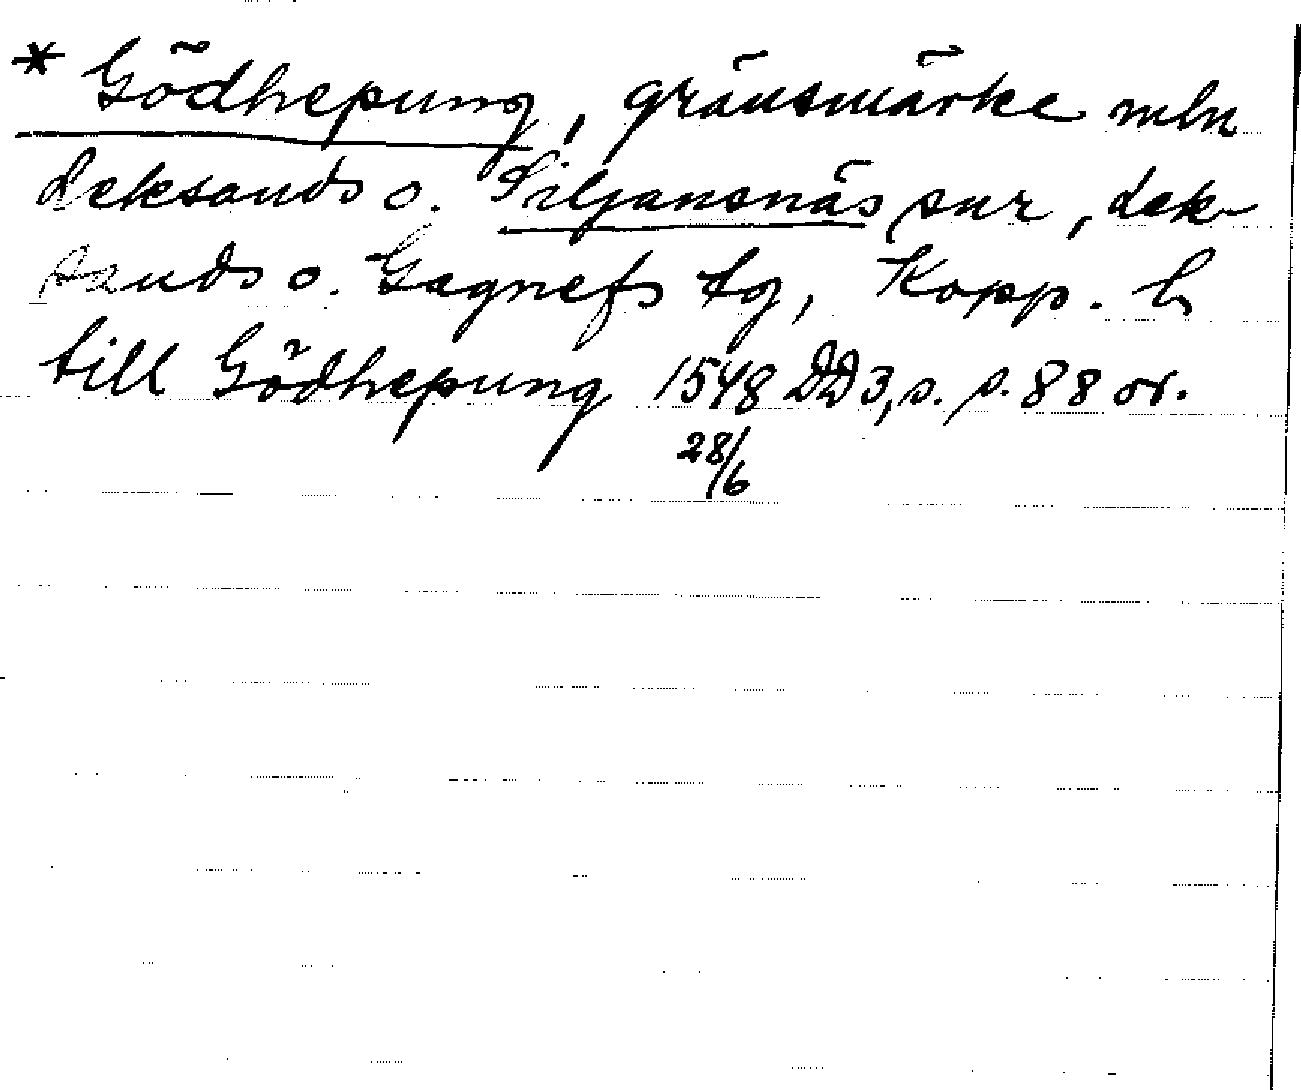 * Gödhepung, gränsmärke mln
Leksands o. Siljansnäs snr, Lek-
sands o. Gagnefs tg, Kopp. l
till Gödhepung 1548 DD 3, s. 88 or.
28/6